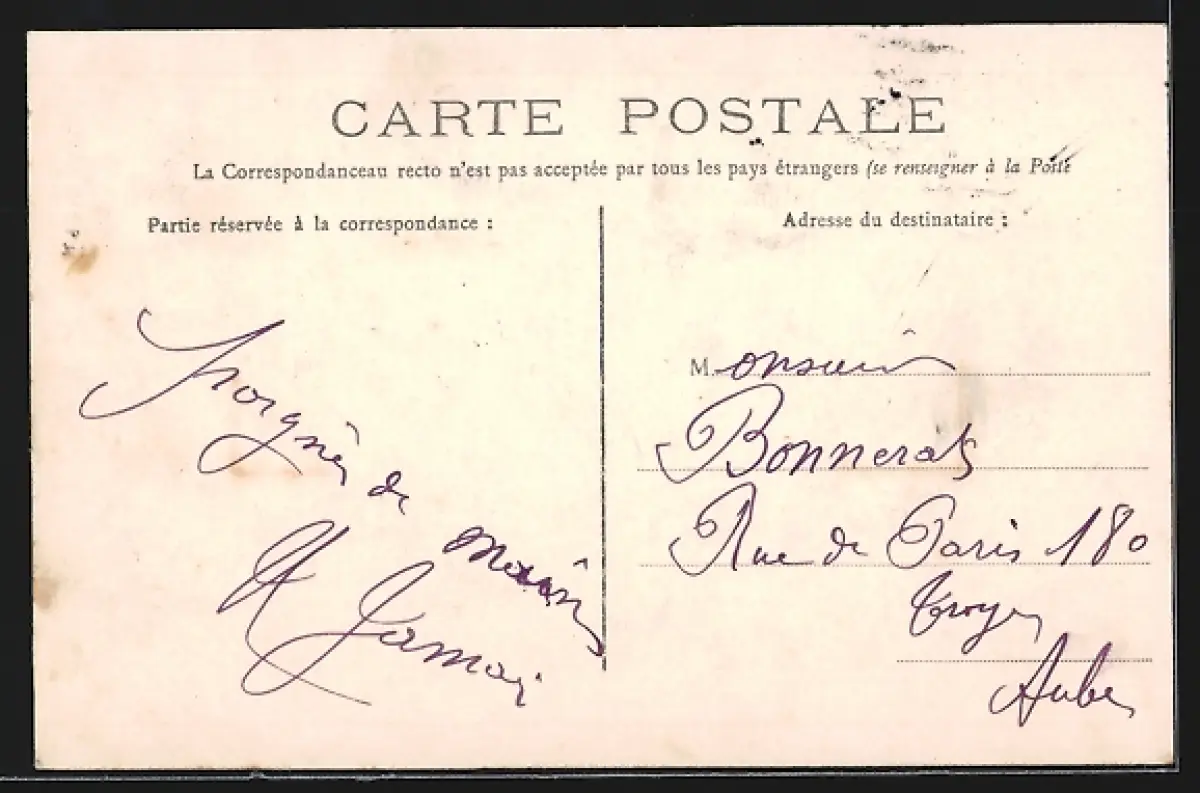 CARTE POSTALE
La Correspondanceau recto n'est pas acceptée par tous les pays étrangers (se renseigner à la Poste
Partie réservée à la correspondance :
de
Adresse du destinataire :
Monsieur
Bonnerat
Rue de Paris 180
Troyes
Aube